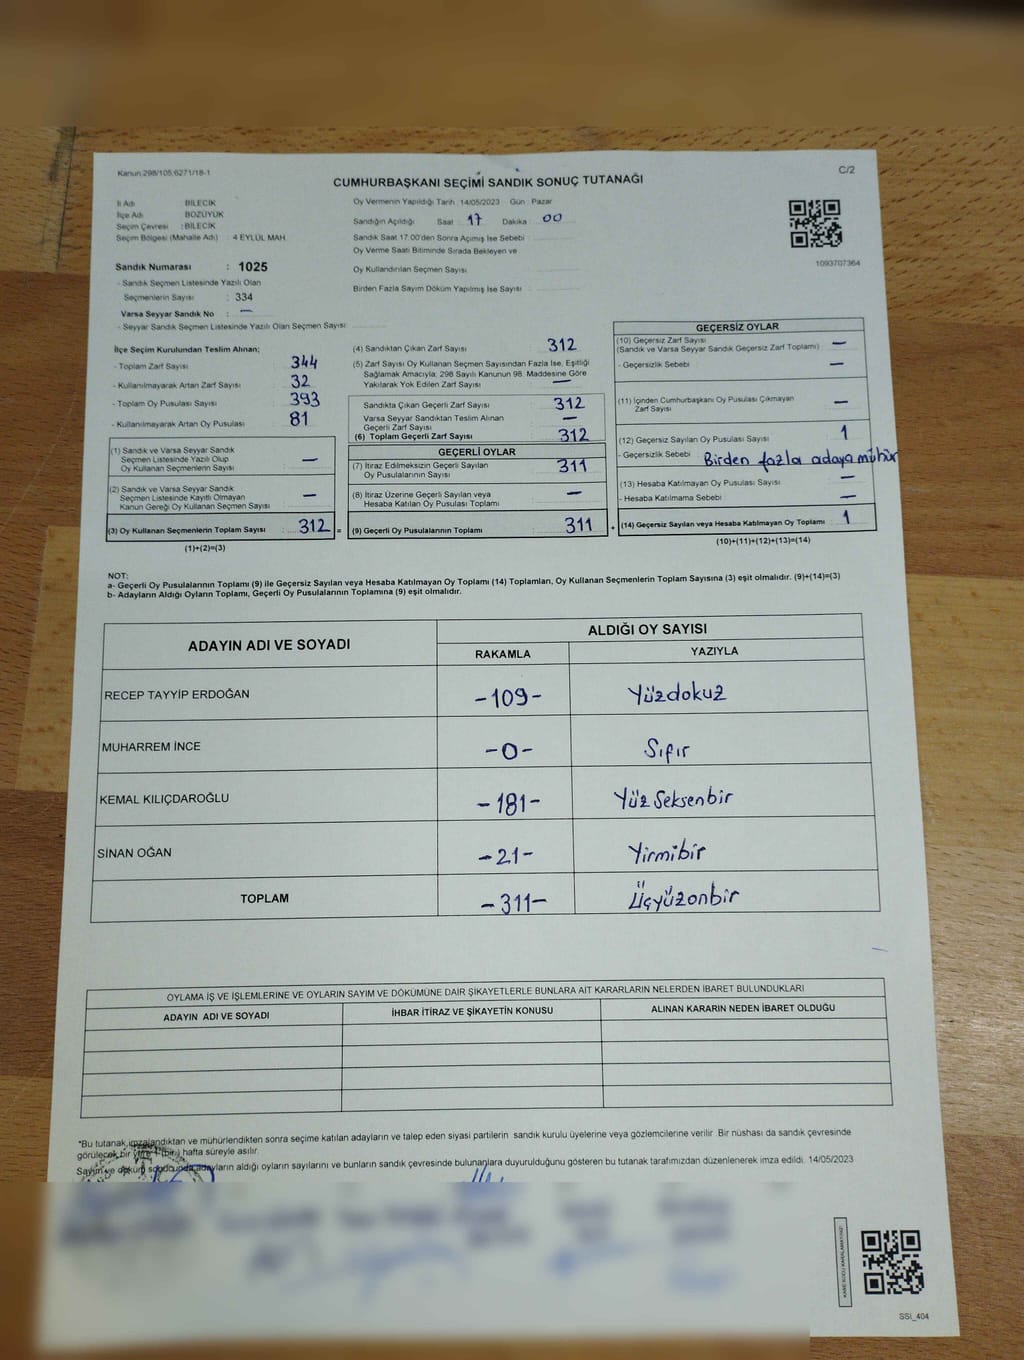 Kanun:298/105,6271/18-1
C/2
CUMHURBAŞKANI SEÇİMİ SANDIK SONUÇ TUTANAĞI
İl Adı : BİLECİK
İlçe Adı : BOZÜYÜK
Seçim Çevresi : BİLECİK
Seçim Bölgesi (Mahalle Adı) : 4 EYLÜL MAH.
Sandık Numarası : 1025
- Sandık Seçmen Listesinde Yazılı Olan
Seçmenlerin Sayısı : 334
Varsa Seyyar Sandık No : —
- Seyyar Sandık Seçmen Listesinde Yazılı Olan Seçmen Sayısı:
Oy Vermenin Yapıldığı Tarih :14/05/2023 Gün : Pazar
Sandığın Açıldığı Saat : 17 Dakika : 00
Sandık Saat 17.00'den Sonra Açımış İse Sebebi :
Oy Verme Saati Bitiminde Sırada Bekleyen ve
Oy Kullandırılan Seçmen Sayısı
Birden Fazla Sayım Döküm Yapılmış İse Sayısı :
1093707364
İlçe Seçim Kurulundan Teslim Alınan;
- Toplam Zarf Sayısı : 344
- Kullanılmayarak Artan Zarf Sayısı : 32
- Toplam Oy Pusulası Sayısı : 393
- Kullanılmayarak Artan Oy Pusulası : 81
(1) Sandık ve Varsa Seyyar Sandık
Seçmen Listesinde Yazılı Olup
Oy Kullanan Seçmenlerin Sayısı : —
(2) Sandık ve Varsa Seyyar Sandık
Seçmen Listesinde Kayıtlı Olmayan
Kanun Gereği Oy Kullanan Seçmen Sayısı : —
(3) Oy Kullanan Seçmenlerin Toplam Sayısı : 312 =
(1)+(2)=(3)
(4) Sandıktan Çıkan Zarf Sayısı : 312
(5) Zarf Sayısı Oy Kullanan Seçmen Sayısından Fazla İse, Eşitliği
Sağlamak Amacıyla; 298 Sayılı Kanunun 98. Maddesine Göre
Yakılarak Yok Edilen Zarf Sayısı : —
Sandıkta Çıkan Geçerli Zarf Sayısı : 312
Varsa Seyyar Sandıktan Teslim Alınan
Geçerli Zarf Sayısı : —
(6) Toplam Geçerli Zarf Sayısı : 312
GEÇERLİ OYLAR
(7) İtiraz Edilmeksizin Geçerli Sayılan
Oy Pusulalarının Sayısı : 311
(8) İtiraz Üzerine Geçerli Sayılan veya
Hesaba Katılan Oy Pusulası Toplamı : —
(9) Geçerli Oy Pusulalarının Toplamı : 311 +
GEÇERSİZ OYLAR
(10) Geçersiz Zarf Sayısı
(Sandık ve Varsa Seyyar Sandık Geçersiz Zarf Toplamı) : —
- Geçersizlik Sebebi : —
(11) İçinden Cumhurbaşkanı Oy Pusulası Çıkmayan
Zarf Sayısı : —
(12) Geçersiz Sayılan Oy Pusulası Sayısı : 1
- Geçersizlik Sebebi : Birden fazla adaya mühür
(13) Hesaba Katılmayan Oy Pusulası Sayısı : —
- Hesaba Katılmama Sebebi : —
(14) Geçersiz Sayılan veya Hesaba Katılmayan Oy Toplamı : 1
(10)+(11)+(12)+(13)=(14)
NOT:
a- Geçerli Oy Pusulalarının Toplamı (9) ile Geçersiz Sayılan veya Hesaba Katılmayan Oy Toplamı (14) Toplamları, Oy Kullanan Seçmenlerin Toplam Sayısına (3) eşit olmalıdır. (9)+(14)=(3)
b- Adayların Aldığı Oyların Toplamı, Geçerli Oy Pusulalarının Toplamına (9) eşit olmalıdır.
ADAYIN ADI VE SOYADI
ALDIĞI OY SAYISI
RAKAMLA YAZIYLA
RECEP TAYYİP ERDOĞAN -109- Yüzdokuz
MUHARREM İNCE -0- Sıfır
KEMAL KILIÇDAROĞLU -181- Yüz Seksenbir
SİNAN OĞAN -21- Yirmibir
TOPLAM -311- Üçyüzonbir
OYLAMA İŞ VE İŞLEMLERİNE VE OYLARIN SAYIM VE DÖKÜMÜNE DAİR ŞİKAYETLERLE BUNLARA AİT KARARLARIN NELERDEN İBARET BULUNDUKLARI
ADAYIN ADI VE SOYADI İHBAR İTİRAZ VE ŞİKAYETİN KONUSU ALINAN KARARIN NEDEN İBARET OLDUĞU
*Bu tutanak imzalandıktan ve mühürlendikten sonra seçime katılan adayların ve talep eden siyasi partilerin sandık kurulu üyelerine veya gözlemcilerine verilir. Bir nüshası da sandık çevresinde
görülecek bir yere 1 (bir) hafta süreyle asılır.
Sayım ve döküm sonucunda adayların aldığı oyların sayılarını ve bunların sandık çevresinde bulunanlara duyurulduğunu gösteren bu tutanak tarafımızdan düzenlenerek imza edildi. 14/05/2023
KARE KODU KARALAMAYINIZ!
SSİ_404